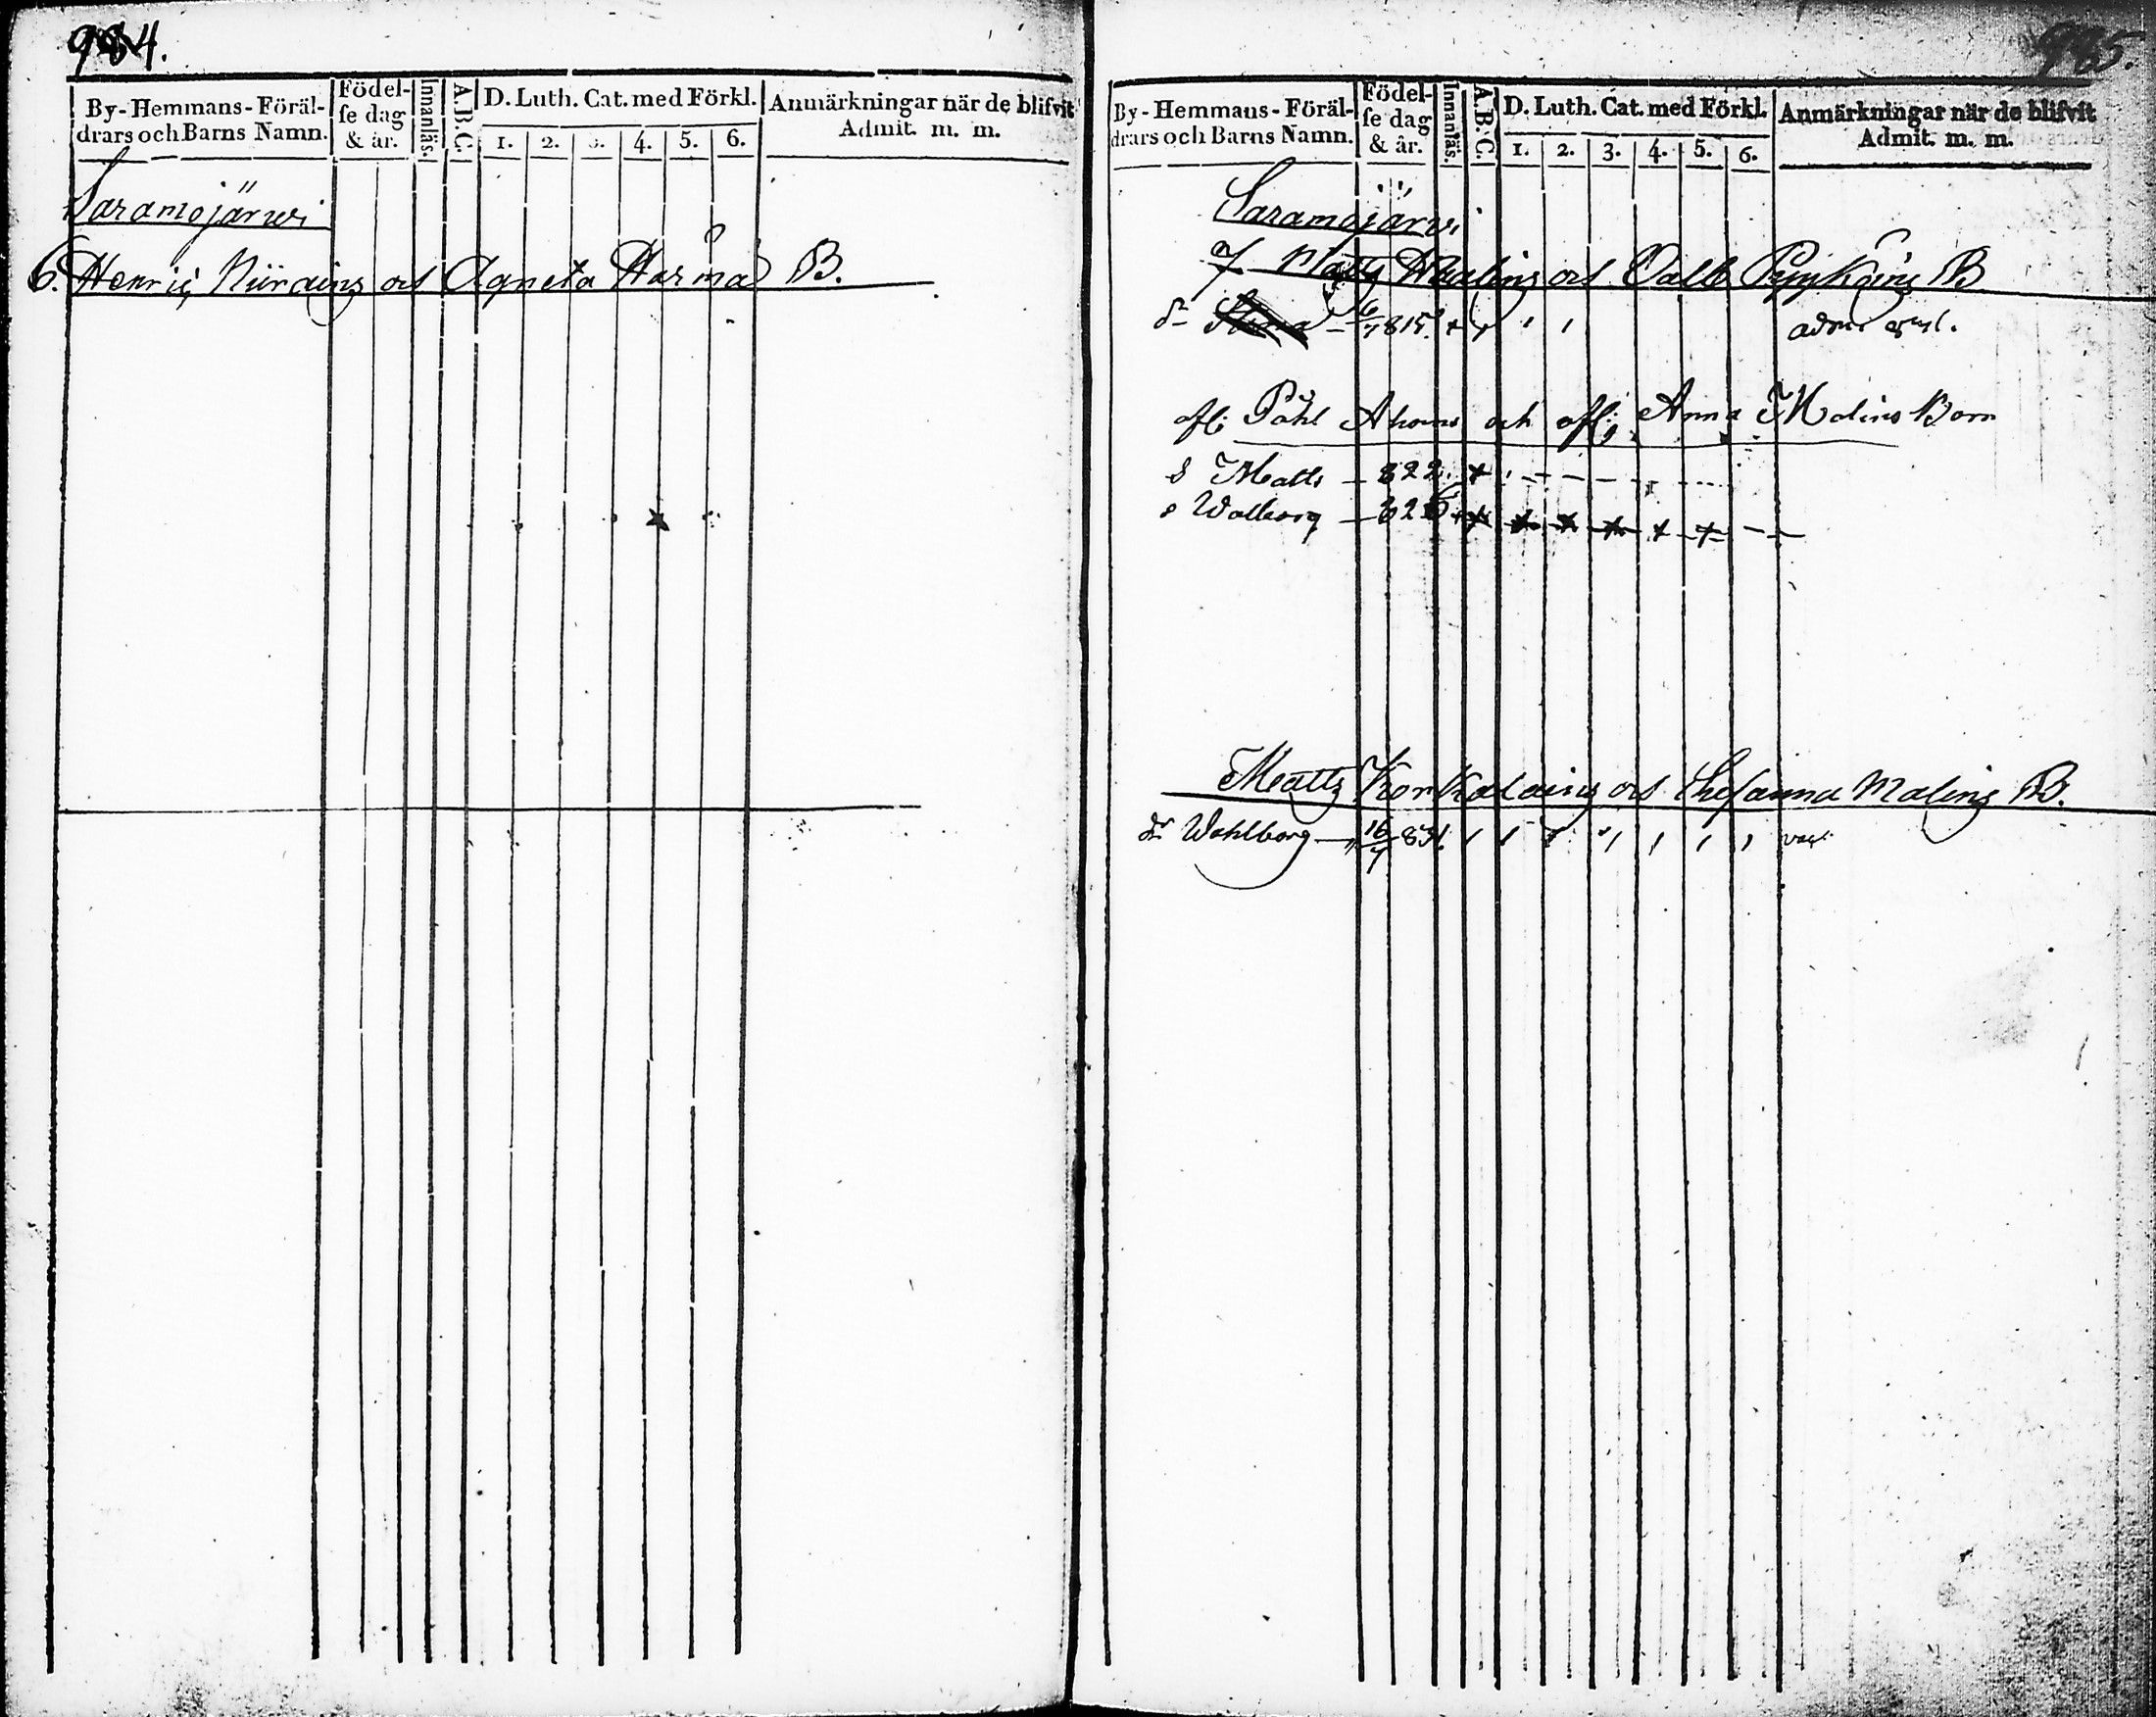 984.
By-Hemmans-Föräl-
drars och Barns Namn.
Födel-
se dag
& år.
Innanläs.
A.B.C.
D. Luth. Cat. med Förkl.
1. 2. 3. 4. 5. 6.
Anmärkningar när de blifvit
Admit. m. m.
Saramojärwi
6. Henric Niirains och Agneta Harma B.
985.
By-Hemmans-Föräl-
drars och Barns Namn.
Födel-
se dag
& år.
Innanläs.
A.B.C.
D. Luth. Cat. med Förkl.
1. 2. 3. 4. 5. 6.
Anmärkningar när de blifvit
Admit. m. m.
Saramojärwi
7. och B
dr Stina 815.
afl: Påhl Ahoins och afl: Anna Malins Barn
s Matts - 822.
d Walborg - 826
Matts Korkalains och Malins B.
dr Wahlborg - 16/7 831.